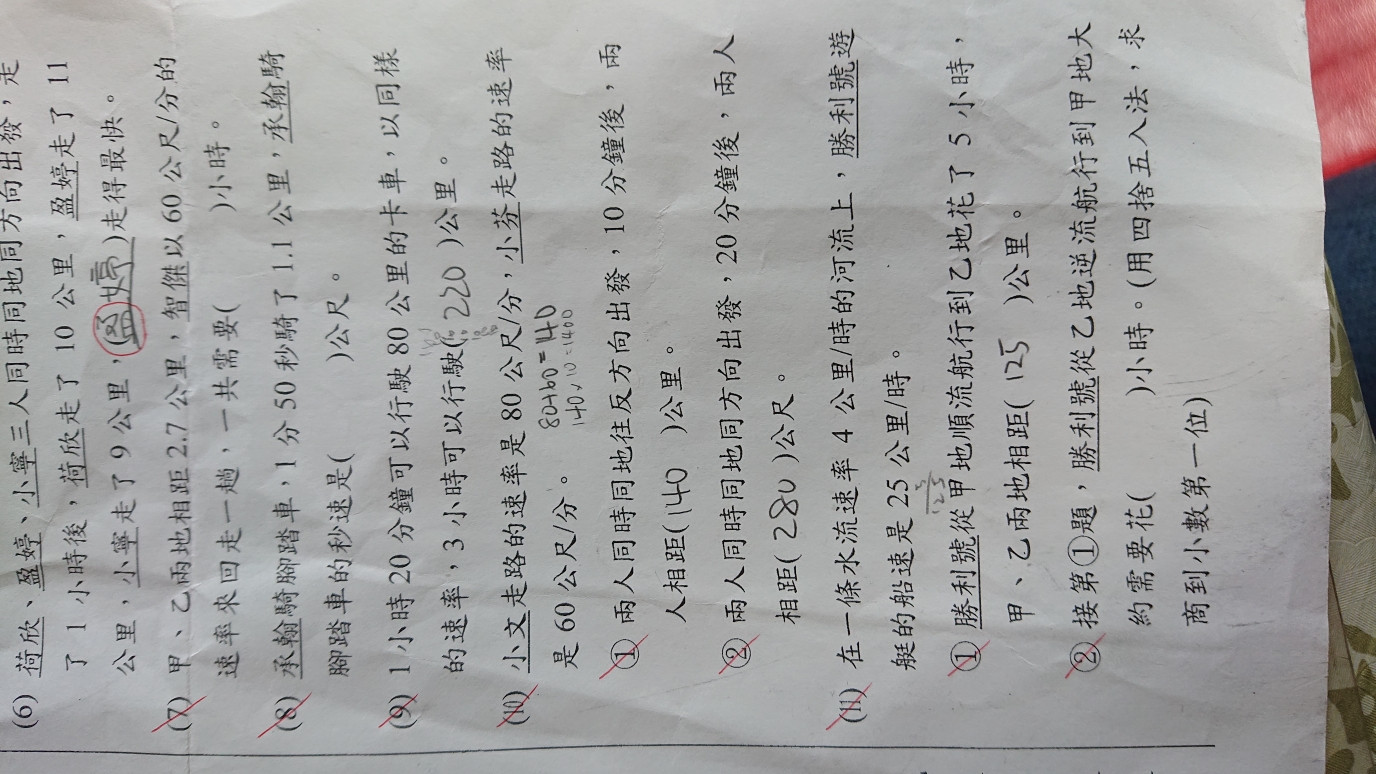 (6) 荷欣、盈婷、小寧三人同時同地同方向出發,走
了 1 小時後,荷欣走了 10 公里,盈婷走了 11
公里,小寧走了 9 公里,(盈婷)走得最快。
(7) 甲、乙兩地相距 2.7 公里,智傑以 60 公尺/分的
速率來回走一趟,一共需要( )小時。
(8) 承翰騎腳踏車,1 分 50 秒騎了 1.1 公里,承翰騎
腳踏車的秒速是( )公尺。
(9) 1 小時 20 分鐘可以行駛 80 公里的卡車,以同樣
的速率,3 小時可以行駛( 220 )公里。
(10) 小文走路的速率是 80 公尺/分,小芬走路的速率
是 60 公尺/分。
80+60=140
140×10=1400
① 兩人同時同地往反方向出發,10 分鐘後,兩
人相距( 140 )公里。
② 兩人同時同地同方向出發,20 分鐘後,兩人
相距( 280 )公尺。
(11) 在一條水流速率 4 公里/時的河流上,勝利號遊
艇的船速是 25 公里/時。
① 勝利號從甲地順流航行到乙地花了 5 小時,
甲、乙兩地相距( 125 )公里。
② 接第①題,勝利號從乙地逆流航行到甲地大
約需要花( )小時。(用四捨五入法,求
商到小數第一位)